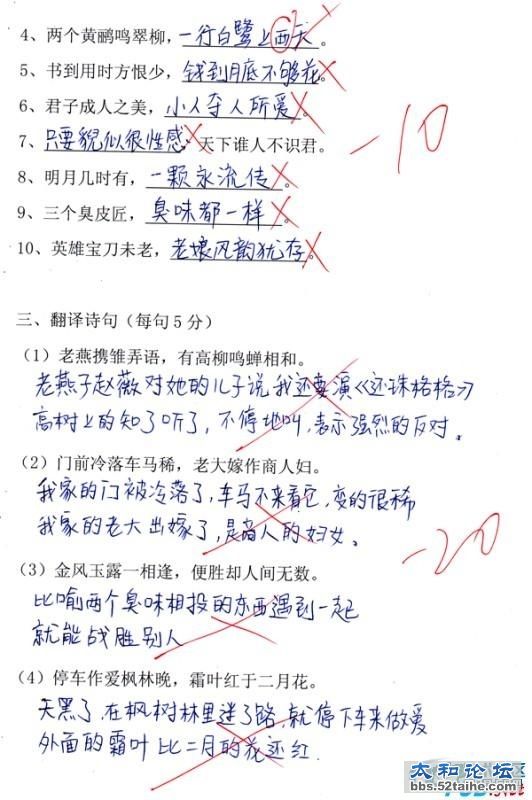 4、两个黄鹂鸣翠柳，一行白鹭上西天。
5、书到用时方恨少，钱到月底不够花。
6、君子成人之美，小人夺人所爱。
7、只要貌似很性感，天下谁人不识君。
8、明月几时有，一颗永流传。
9、三个臭皮匠，臭味都一样。
10、英雄宝刀未老，老娘风韵犹存。
-10
三、翻译诗句（每句5分）
（1）老燕携雏弄语，有高柳鸣蝉相和。
老燕子赵薇对她的儿子说我还要演《还珠格格》
高树上的知了听了，不停地叫，表示强烈的反对。
（2）门前冷落车马稀，老大嫁作商人妇。
我家的门被冷落了，车马不来看它，变的很稀
我家的老大出嫁了，是商人的妇女。
-20
（3）金风玉露一相逢，便胜却人间无数。
比喻两个臭味相投的东西遇到一起
就能战胜别人
（4）停车作爱枫林晚，霜叶红于二月花。
天黑了，在枫树林里迷了路，就停下车来做爱
外面的霜叶比二月的花还红.
太和论坛
bbs.52taihe.com